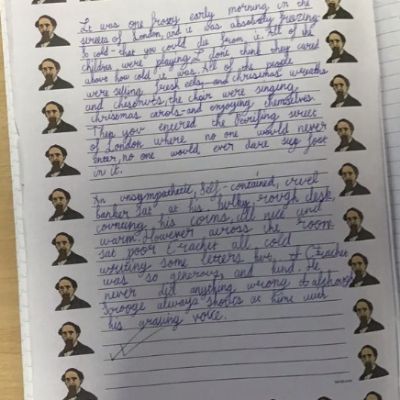 It was one frosty early morning in the
streets of London, and it was absolutely freezing
So cold - that you could die from it. All of the
children were playing I dont think they cared
above how cold it was. All of the people
were selling fresh eels, and chrismas wreaths
and chesnuts, the choir were singing
christmas carols - and enjoying themselves.
Then you entered the terrifing street
of London where no one would never
enter, no one would ever dare set foot
in it.
An unsympathetic, self-contained, cruel
banker sat at his bulky rough desk,
counting his coins, all nice and
warm. However across the room
sat poor Crachet all cold
writing some letters Crachet
was so generous and kind. He
never did anything wrong
Scrooge always shouts at him with
his grating voice.